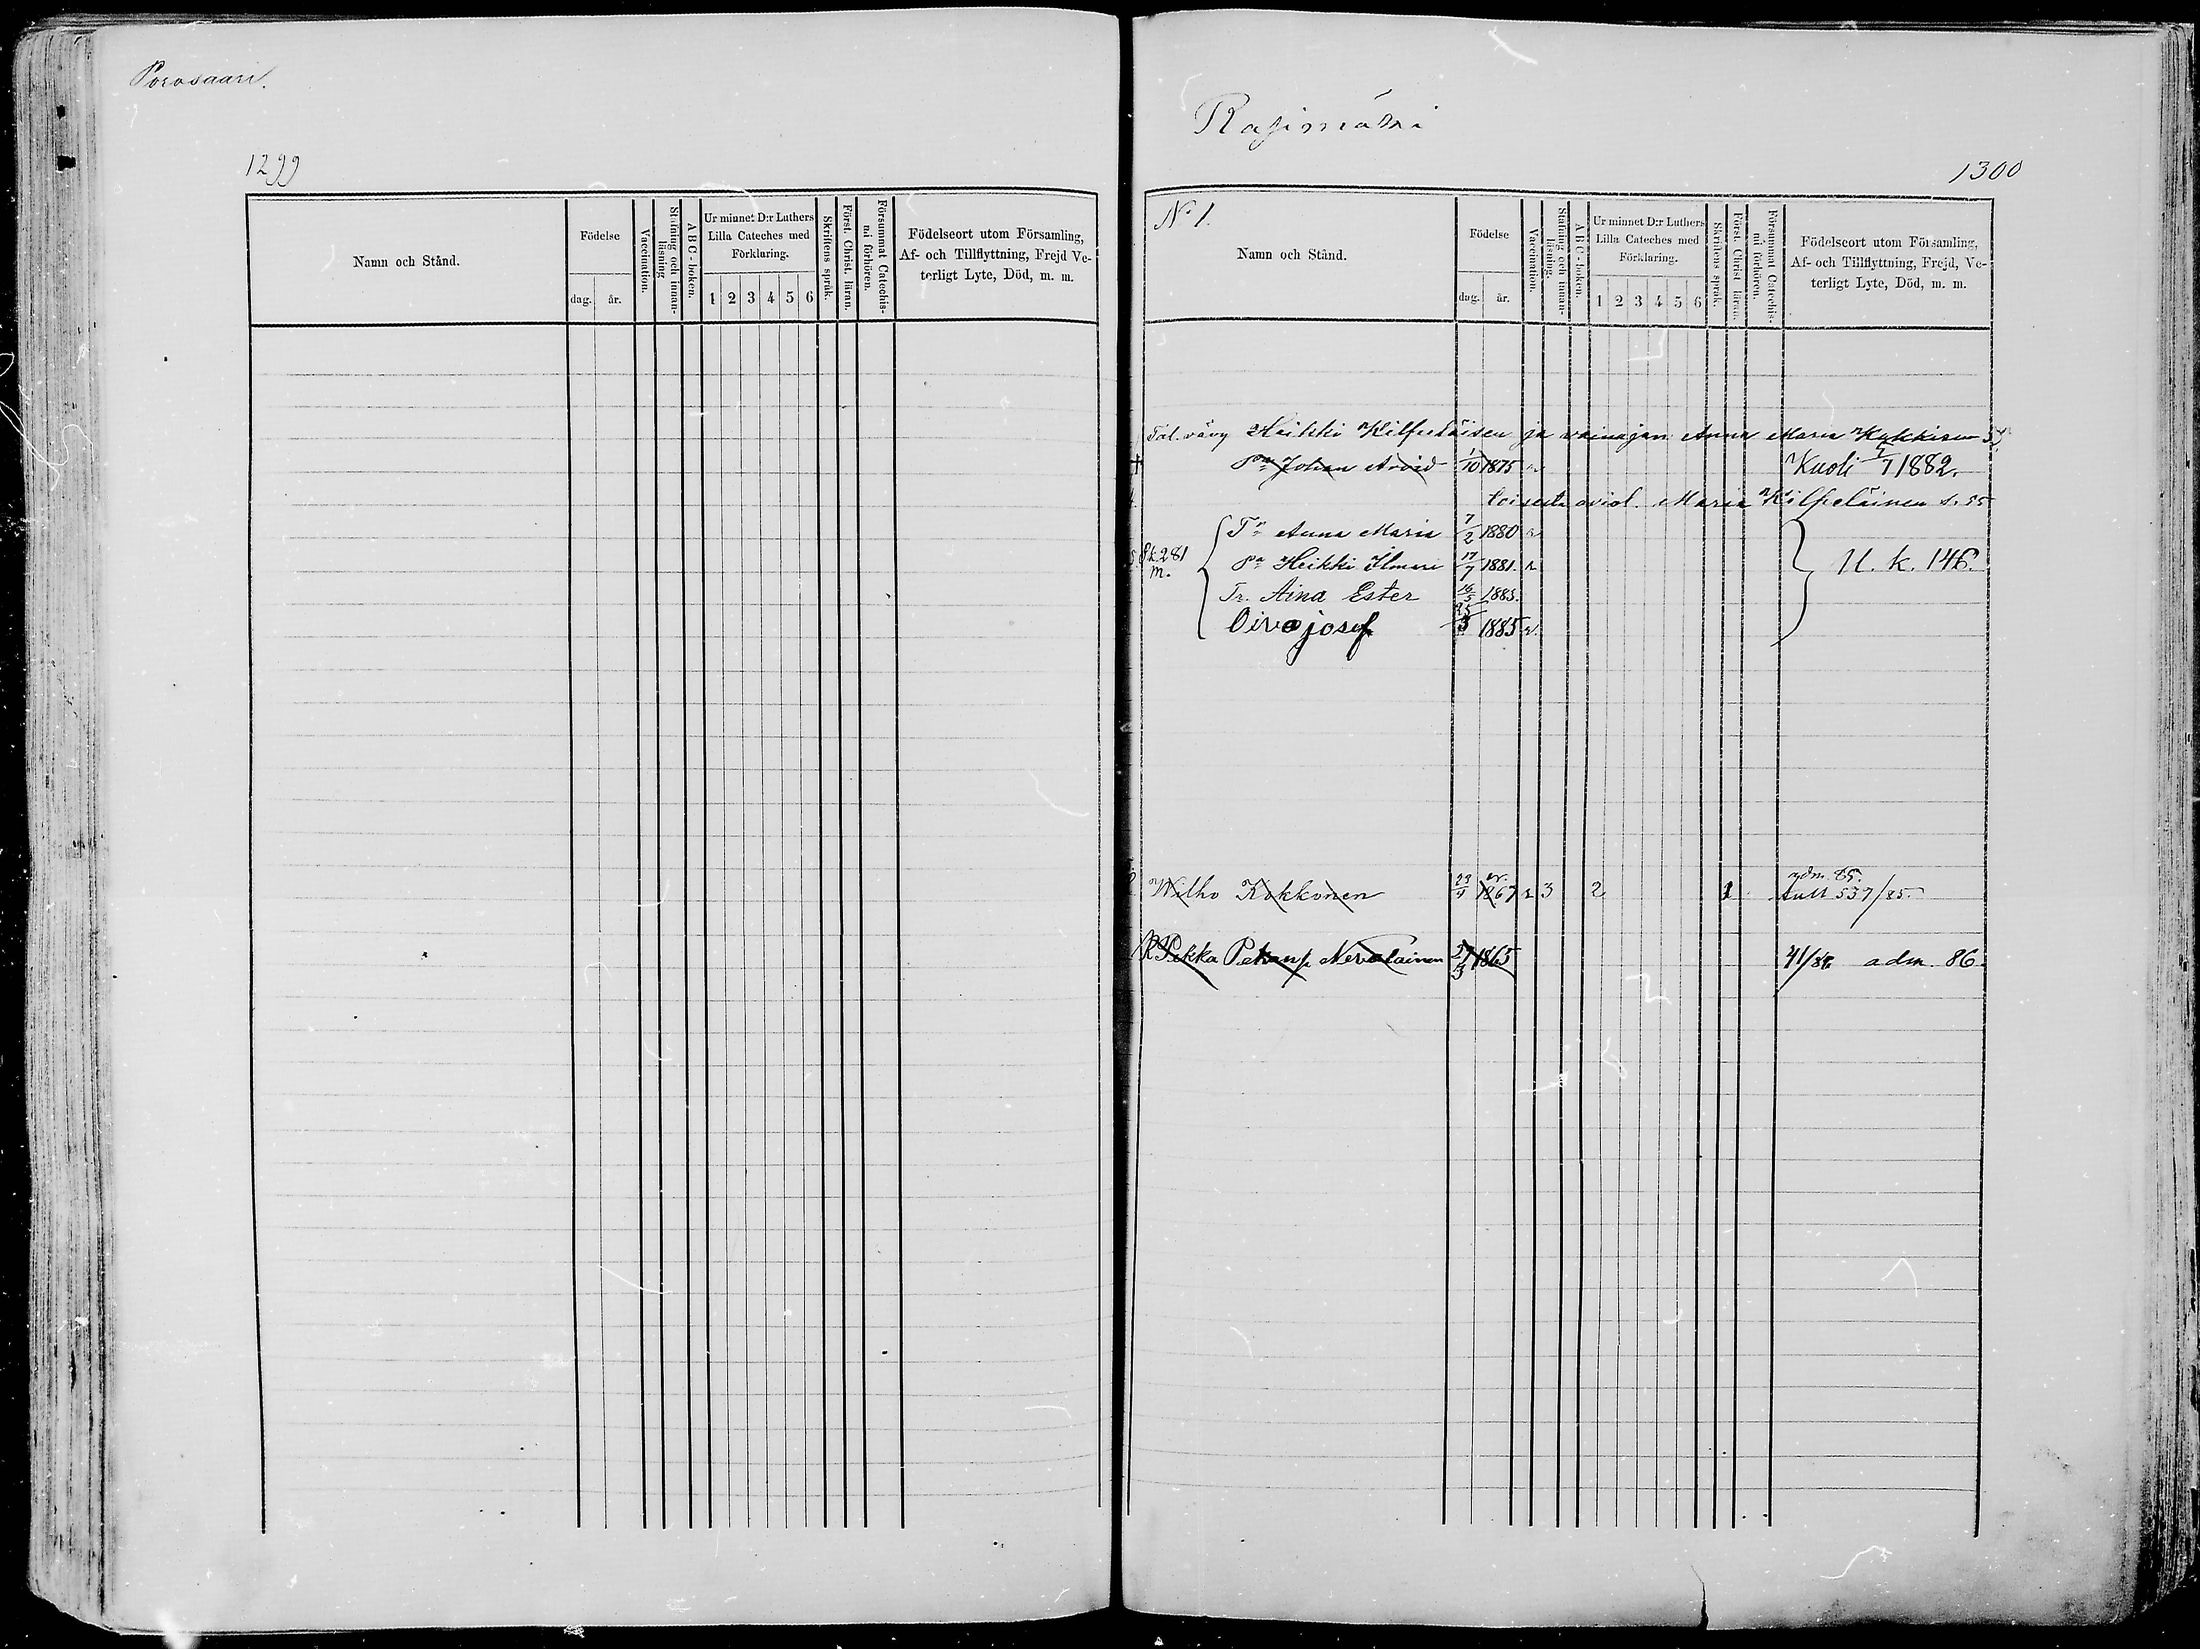 Porosaari.
1299
Namn och Stånd.
Födelse
dag.
år.
Vaccination.
Stafning och innan-
läsning
A B C - boken.
Ur minnet D:r Luthers
Lilla Cateches med
Förklaring.
1 2 3 4 5 6
Skriftens språk.
Först. Christ. läran.
Försummat Catechis-
mi förhören.
Födelseort utom Församling,
Af- och Tillflyttning, Frejd Ve-
terligt Lyte, Död, m. m.
Rasimäki
1300
No 1.
Namn och Stånd.
Födelse
dag.
år.
Vaccination.
Stafning och innan-
läsning.
A B C - boken.
Ur minnet D:r Luthers
Lilla Cateches med
Förklaring.
1 2 3 4 5 6
Skriftens språk.
Först. Christ läran.
Försummat Catechis-
mi förhören.
Födelseort utom Församling,
Af- och Tillflyttning, Frejd, Ve-
terligt Lyte, Död, m. m.
Tal. vävy Heikki Kilpeläisen ja vainajan Anna Maria Kukkisen
Pa Johan Arvid 1/10 1875 Kuoli 7/7 1882.
toisesta aviol. Maria Kilpeläinen s. 55
Tr Anna Maria 7/2 1880 v
Sk 281 m. Pa Heikki Ilmari 17/7 1881. v U. k. 146.
Tr. Aina Ester 16/5 1883.
Oiva josef 25/3 1885 v.
adm. 85.
Wilho Kokkonen 23/4 1867 v 3 2 1 tult 537/85.
R Pekka Pekanp. Nevalainen 27/3 1865 41/86 adm. 86.